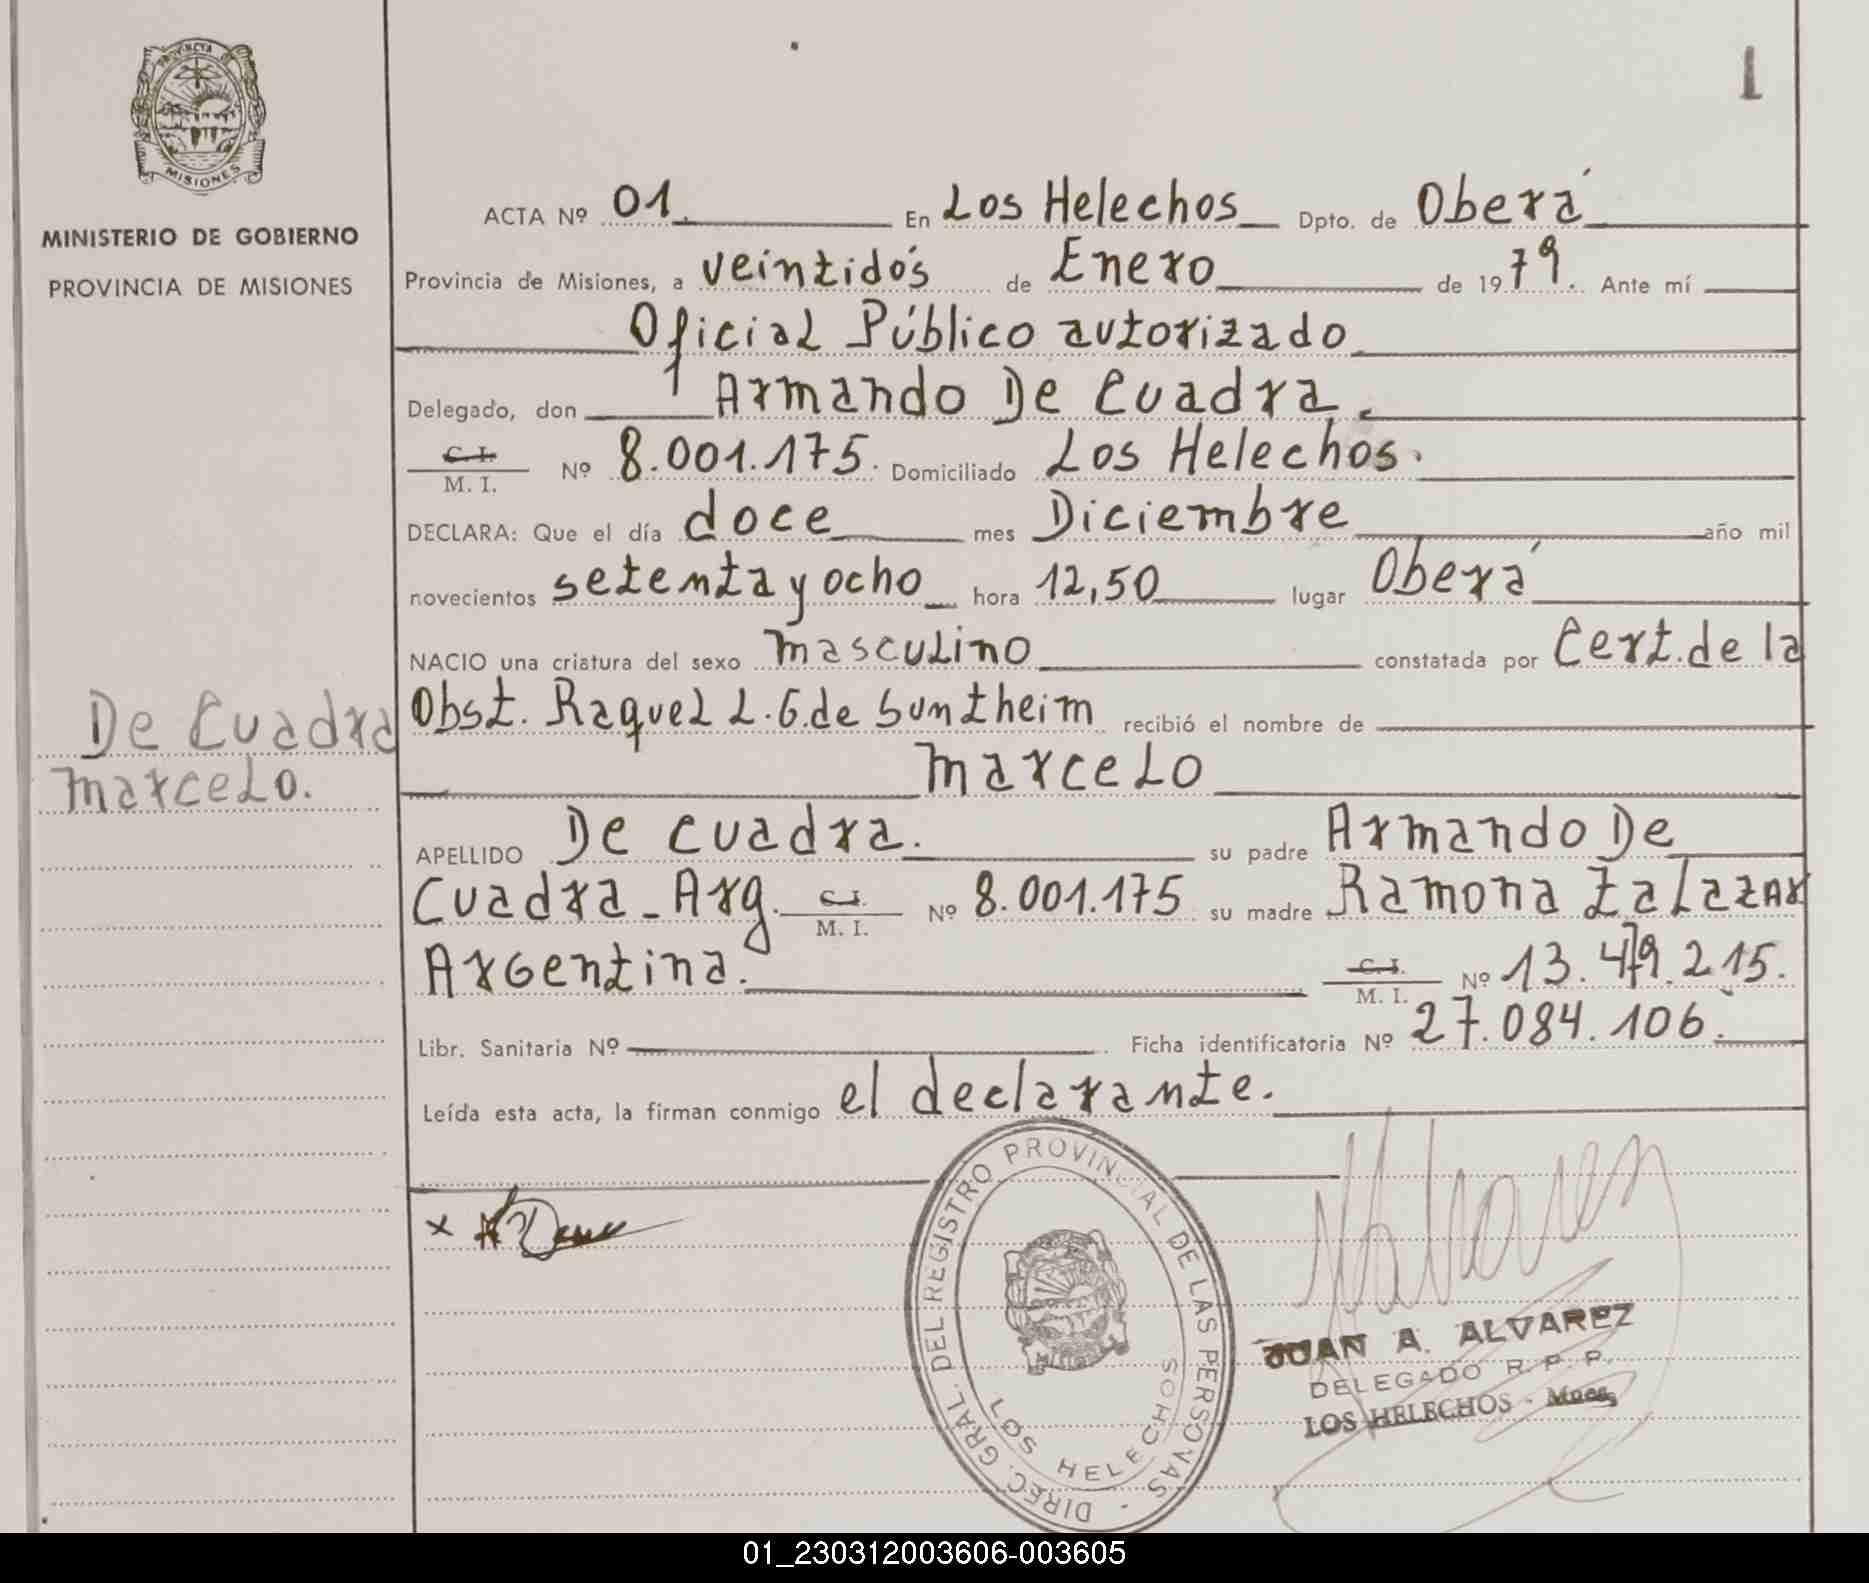 PROVINCIA
MISIONES
MINISTERIO DE GOBIERNO
PROVINCIA DE MISIONES
De Cuadra
Marcelo.
1
ACTA Nº 01. En Los Helechos Dpto. de Oberá
Provincia de Misiones, a veintidós de Enero de 1979. Ante mí
Oficial Público autorizado
Delegado, don Armando De Cuadra.
C. I. / M. I. Nº 8.001.175. Domiciliado Los Helechos.
DECLARA: Que el día doce mes Diciembre año mil
novecientos setenta y ocho hora 12,50 lugar Oberá
NACIO una criatura del sexo masculino constatada por Cert. de la
Obst. Raquel L. G. de Suntheim recibió el nombre de
Marcelo
APELLIDO De Cuadra. su padre Armando De
Cuadra - Arg. C. I. / M. I. Nº 8.001.175 su madre Ramona Zalazar
Argentina. C. I. / M. I. Nº 13.479.215.
Libr. Sanitaria Nº Ficha identificatoria Nº 27.084.106.
Leída esta acta, la firman conmigo el declarante.
x
DIREC. GRAL. DEL REGISTRO PROVINCIAL DE LAS PERSONAS -
LOS HELECHOS
JUAN A. ALVAREZ
DELEGADO R. P. P.
LOS HELECHOS - Mnes.
01_230312003606-003605